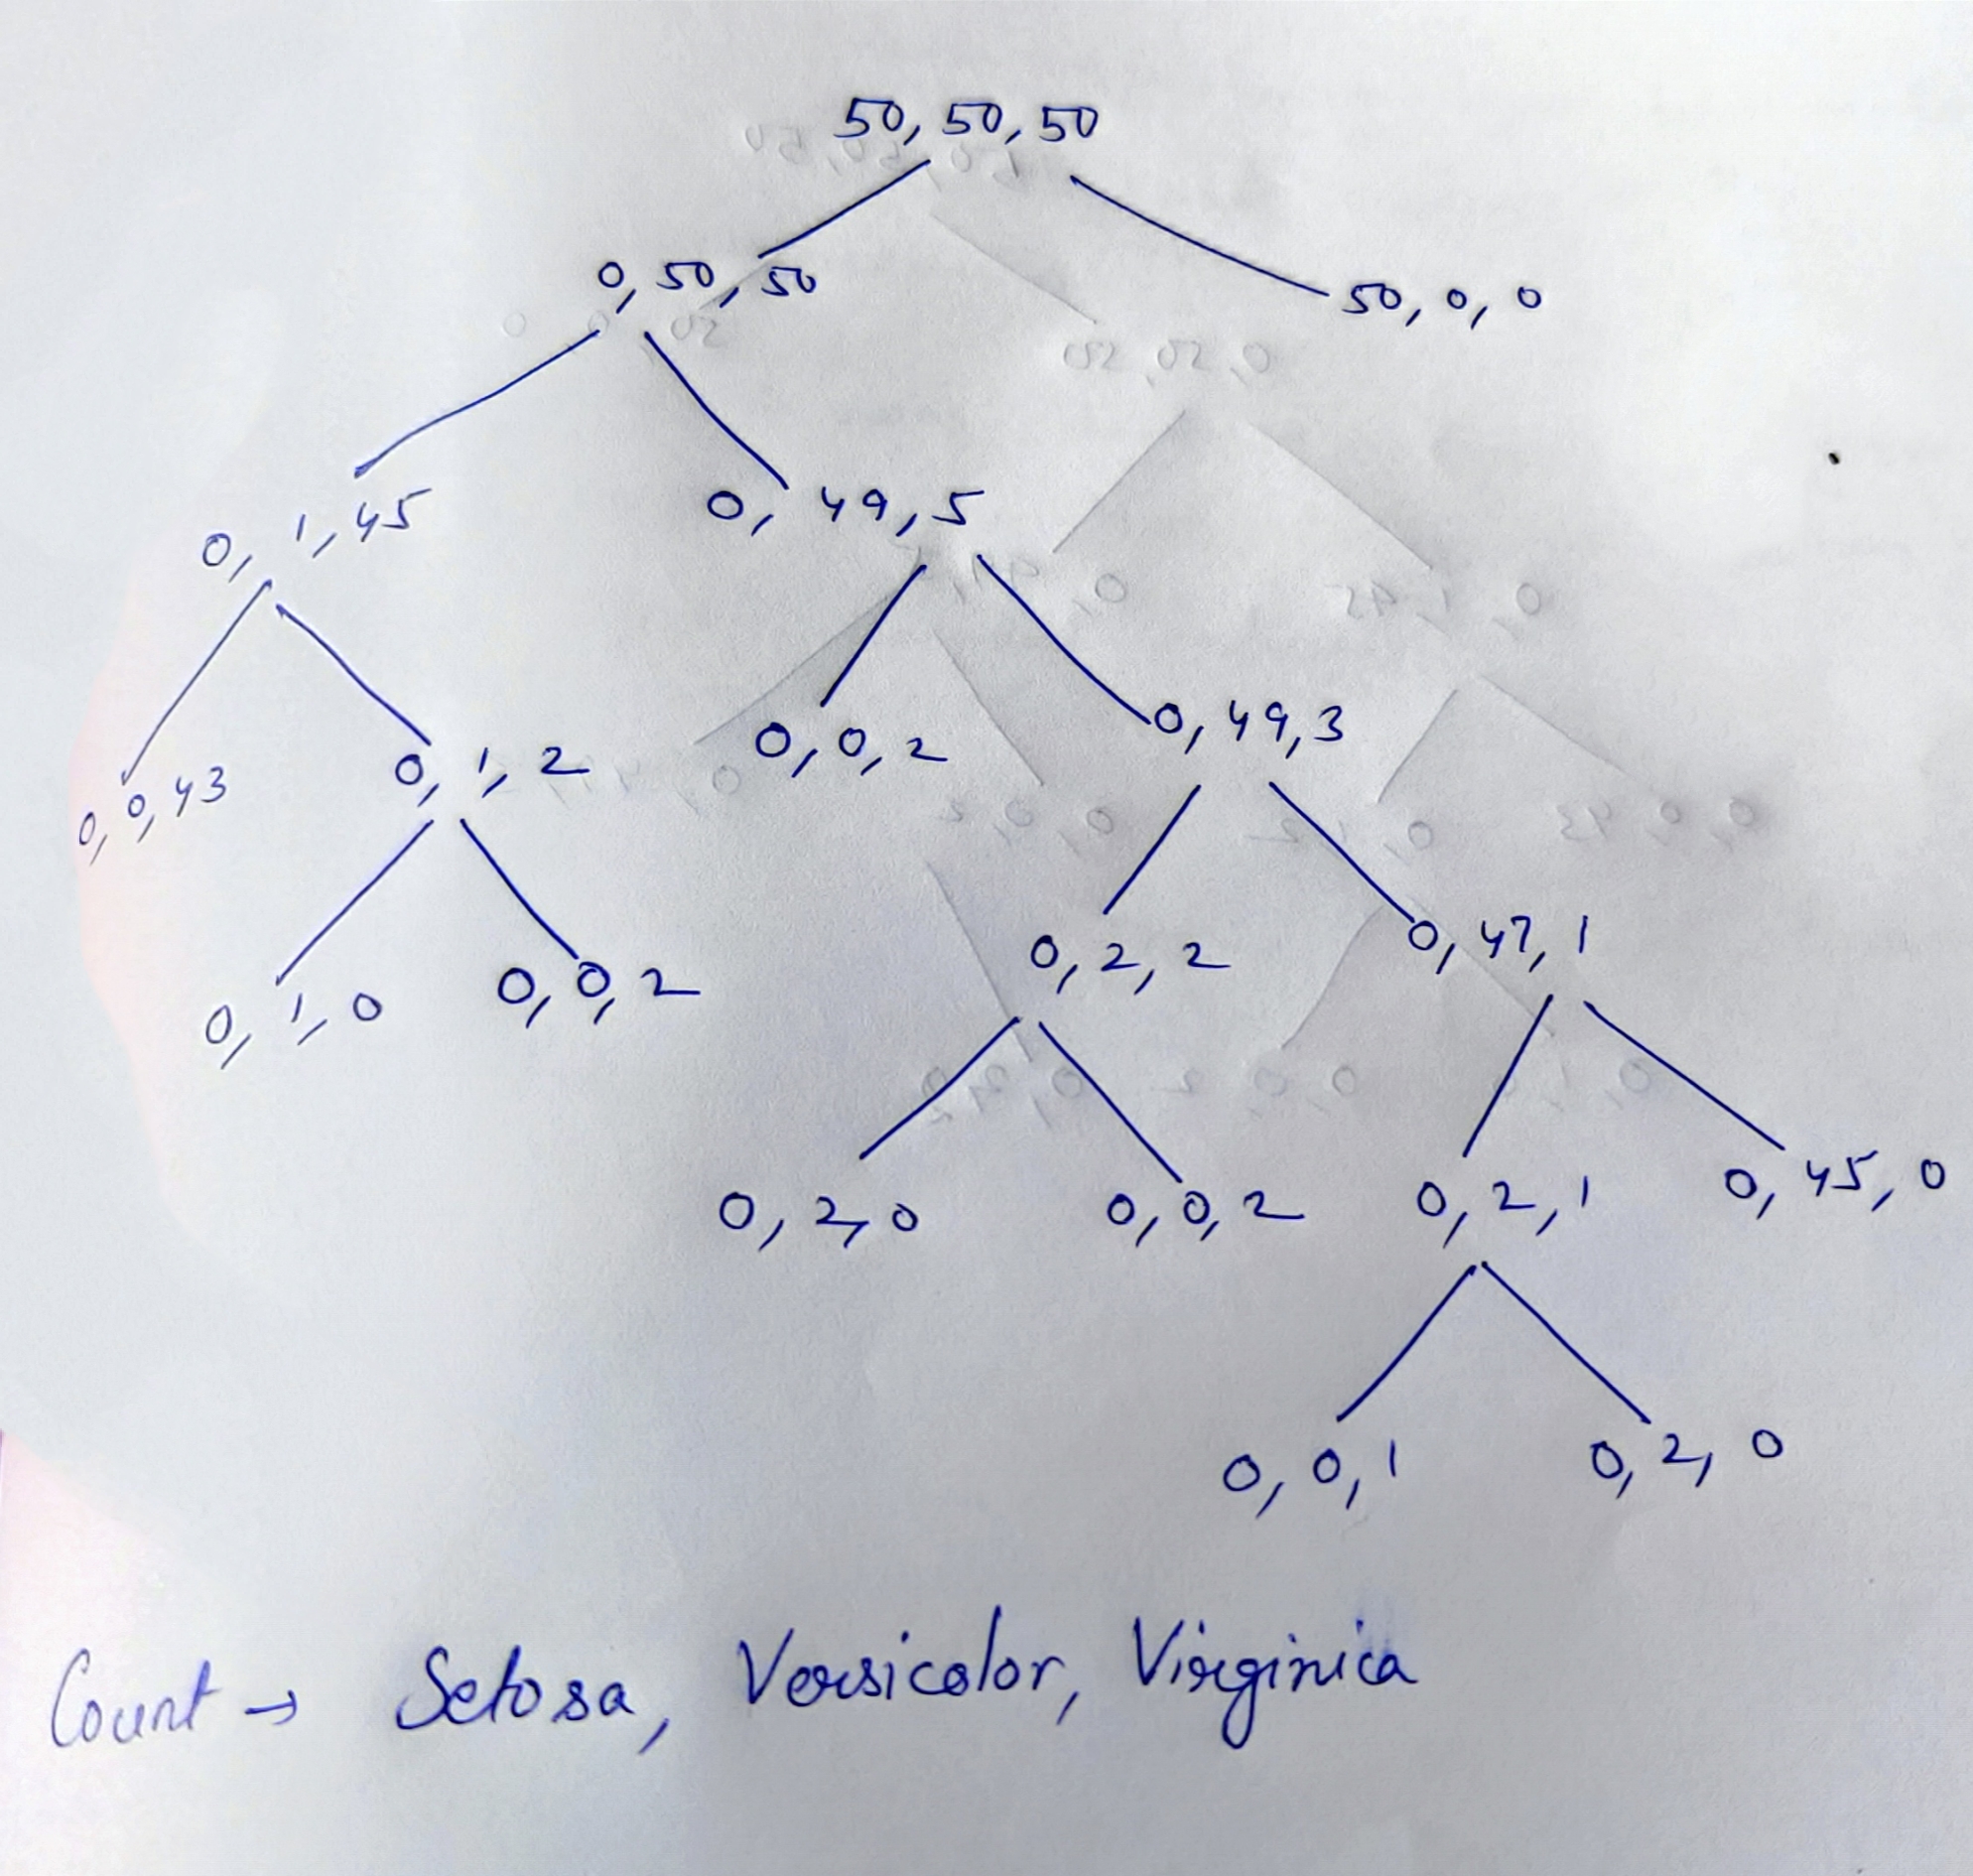 50, 50, 50
0, 50, 50
50, 0, 0
0, 1, 45
0, 49, 5
0, 0, 43
0, 1, 2
0, 0, 2
0, 49, 3
0, 1, 0
0, 0, 2
0, 2, 2
0, 47, 1
0, 2, 0
0, 0, 2
0, 2, 1
0, 45, 0
0, 0, 1
0, 2, 0
Count → Setosa, Versicolor, Virginica